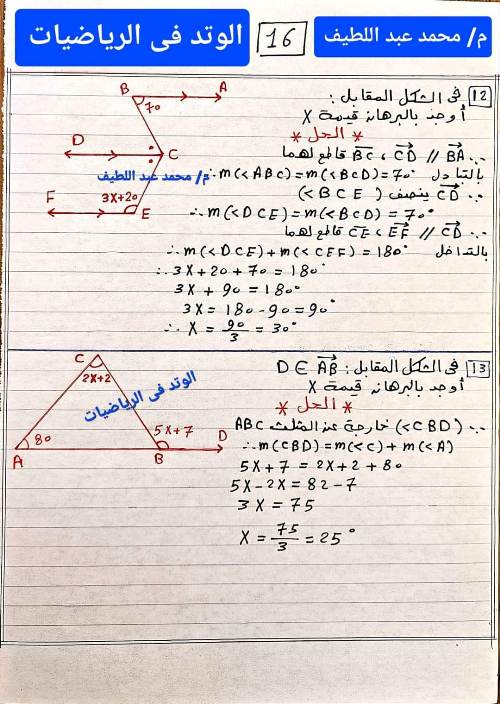 م/ محمد عبد اللطيف
16
الوتد فى الرياضيات
12 فى الشكل المقابل :
أوجد بالبرهان قيمة X
* الحل *
∵ BA // CD ، BC قاطع لهما
∴ m(<ABC) = m(<BCD) = 70° بالتبادل
∵ CD ينصف (<BCE)
∴ m(<DCE) = m(<BCD) = 70°
∵ CD // EF ، CE قاطع لهما
∴ m(<DCE) + m(<CEF) = 180° بالتداخل
∴ 3X + 20 + 70 = 180°
3X + 90 = 180°
3X = 180 - 90 = 90°
∴ X = 90/3 = 30°
B
A
70
D
C
م/ محمد عبد اللطيف
F
3X+20
E
13 فى الشكل المقابل : D ∈ AB
أوجد بالبرهان قيمة X
* الحل *
∵ (<CBD) خارجة عن المثلث ABC
∴ m(CBD) = m(<C) + m(<A)
5X + 7 = 2X + 2 + 80
5X - 2X = 82 - 7
3X = 75
X = 75/3 = 25°
C
2X+2
الوتد فى الرياضيات
80
5X+7
A
B
D